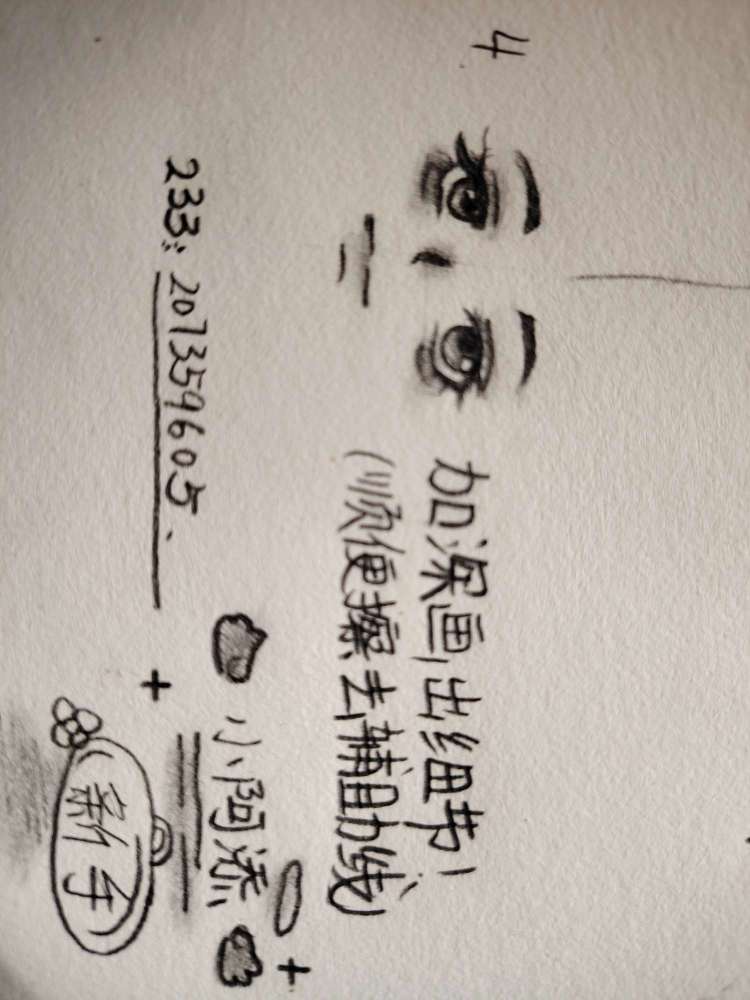 4
加深画出细节!
(顺便擦去辅助线)
小阿添
233: 207359605、
新手